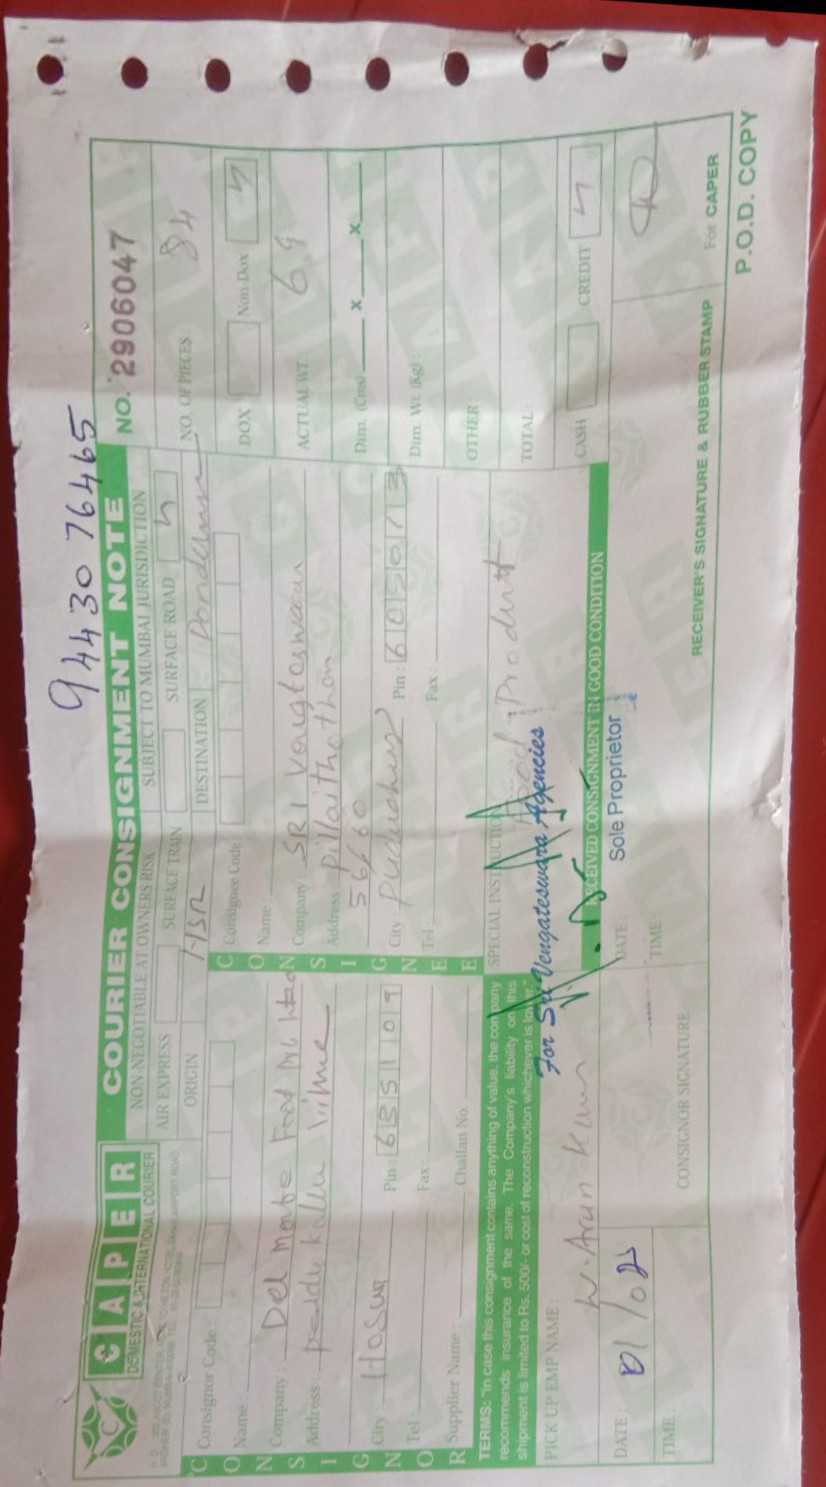 94430 76465
CAPER
DOMESTIC & INTERNATIONAL COURIER
COURIER CONSIGNMENT NOTE
NO. 2906047
NON-NEGOTIABLE AT OWNERS RISK SUBJECT TO MUMBAI JURISDICTION
AIR EXPRESS SURFACE TRAIN SURFACE ROAD
ORIGIN HSR DESTINATION
NO. OF PIECES 84
CONSIGNOR
Consignor Code :
Name :
Company : Del Monte Food Pvt
Address :
City : Hosur Pin : 635109
Tel : Fax :
Supplier Name : Challan No.
CONSIGNEE
Consignee Code
Name :
Company : SRI
Address : Pillaithottam
City : Puducherry Pin : 605013
Tel : Fax :
DOX Non-Dox
ACTUAL WT. 69
Dim. (Cms) x x
Dim. Wt. (Kg) :
OTHER
TOTAL:
CASH CREDIT
TERMS: "In case this consignment contains anything of value, the company
recommends insurance of the same. The Company's liability on this
shipment is limited to Rs. 500/- or cost of reconstruction whichever is lower."
SPECIAL INSTRUCTION Food Product
PICK UP EMP NAME : Arun
For Sri Vengateswara Agencies
RECEIVED CONSIGNMENT IN GOOD CONDITION
Sole Proprietor
DATE : 01/02
TIME :
CONSIGNOR SIGNATURE
DATE :
TIME :
RECEIVER'S SIGNATURE & RUBBER STAMP
For CAPER
P.O.D. COPY